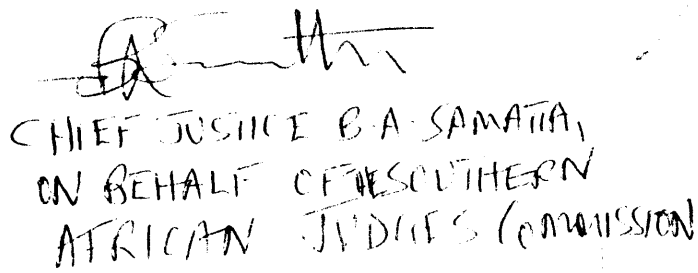 CHIEF JUSTICE B.A. SAMATTA,
ON BEHALF OF THE SOUTHERN
AFRICAN JUDGES COMMISSION